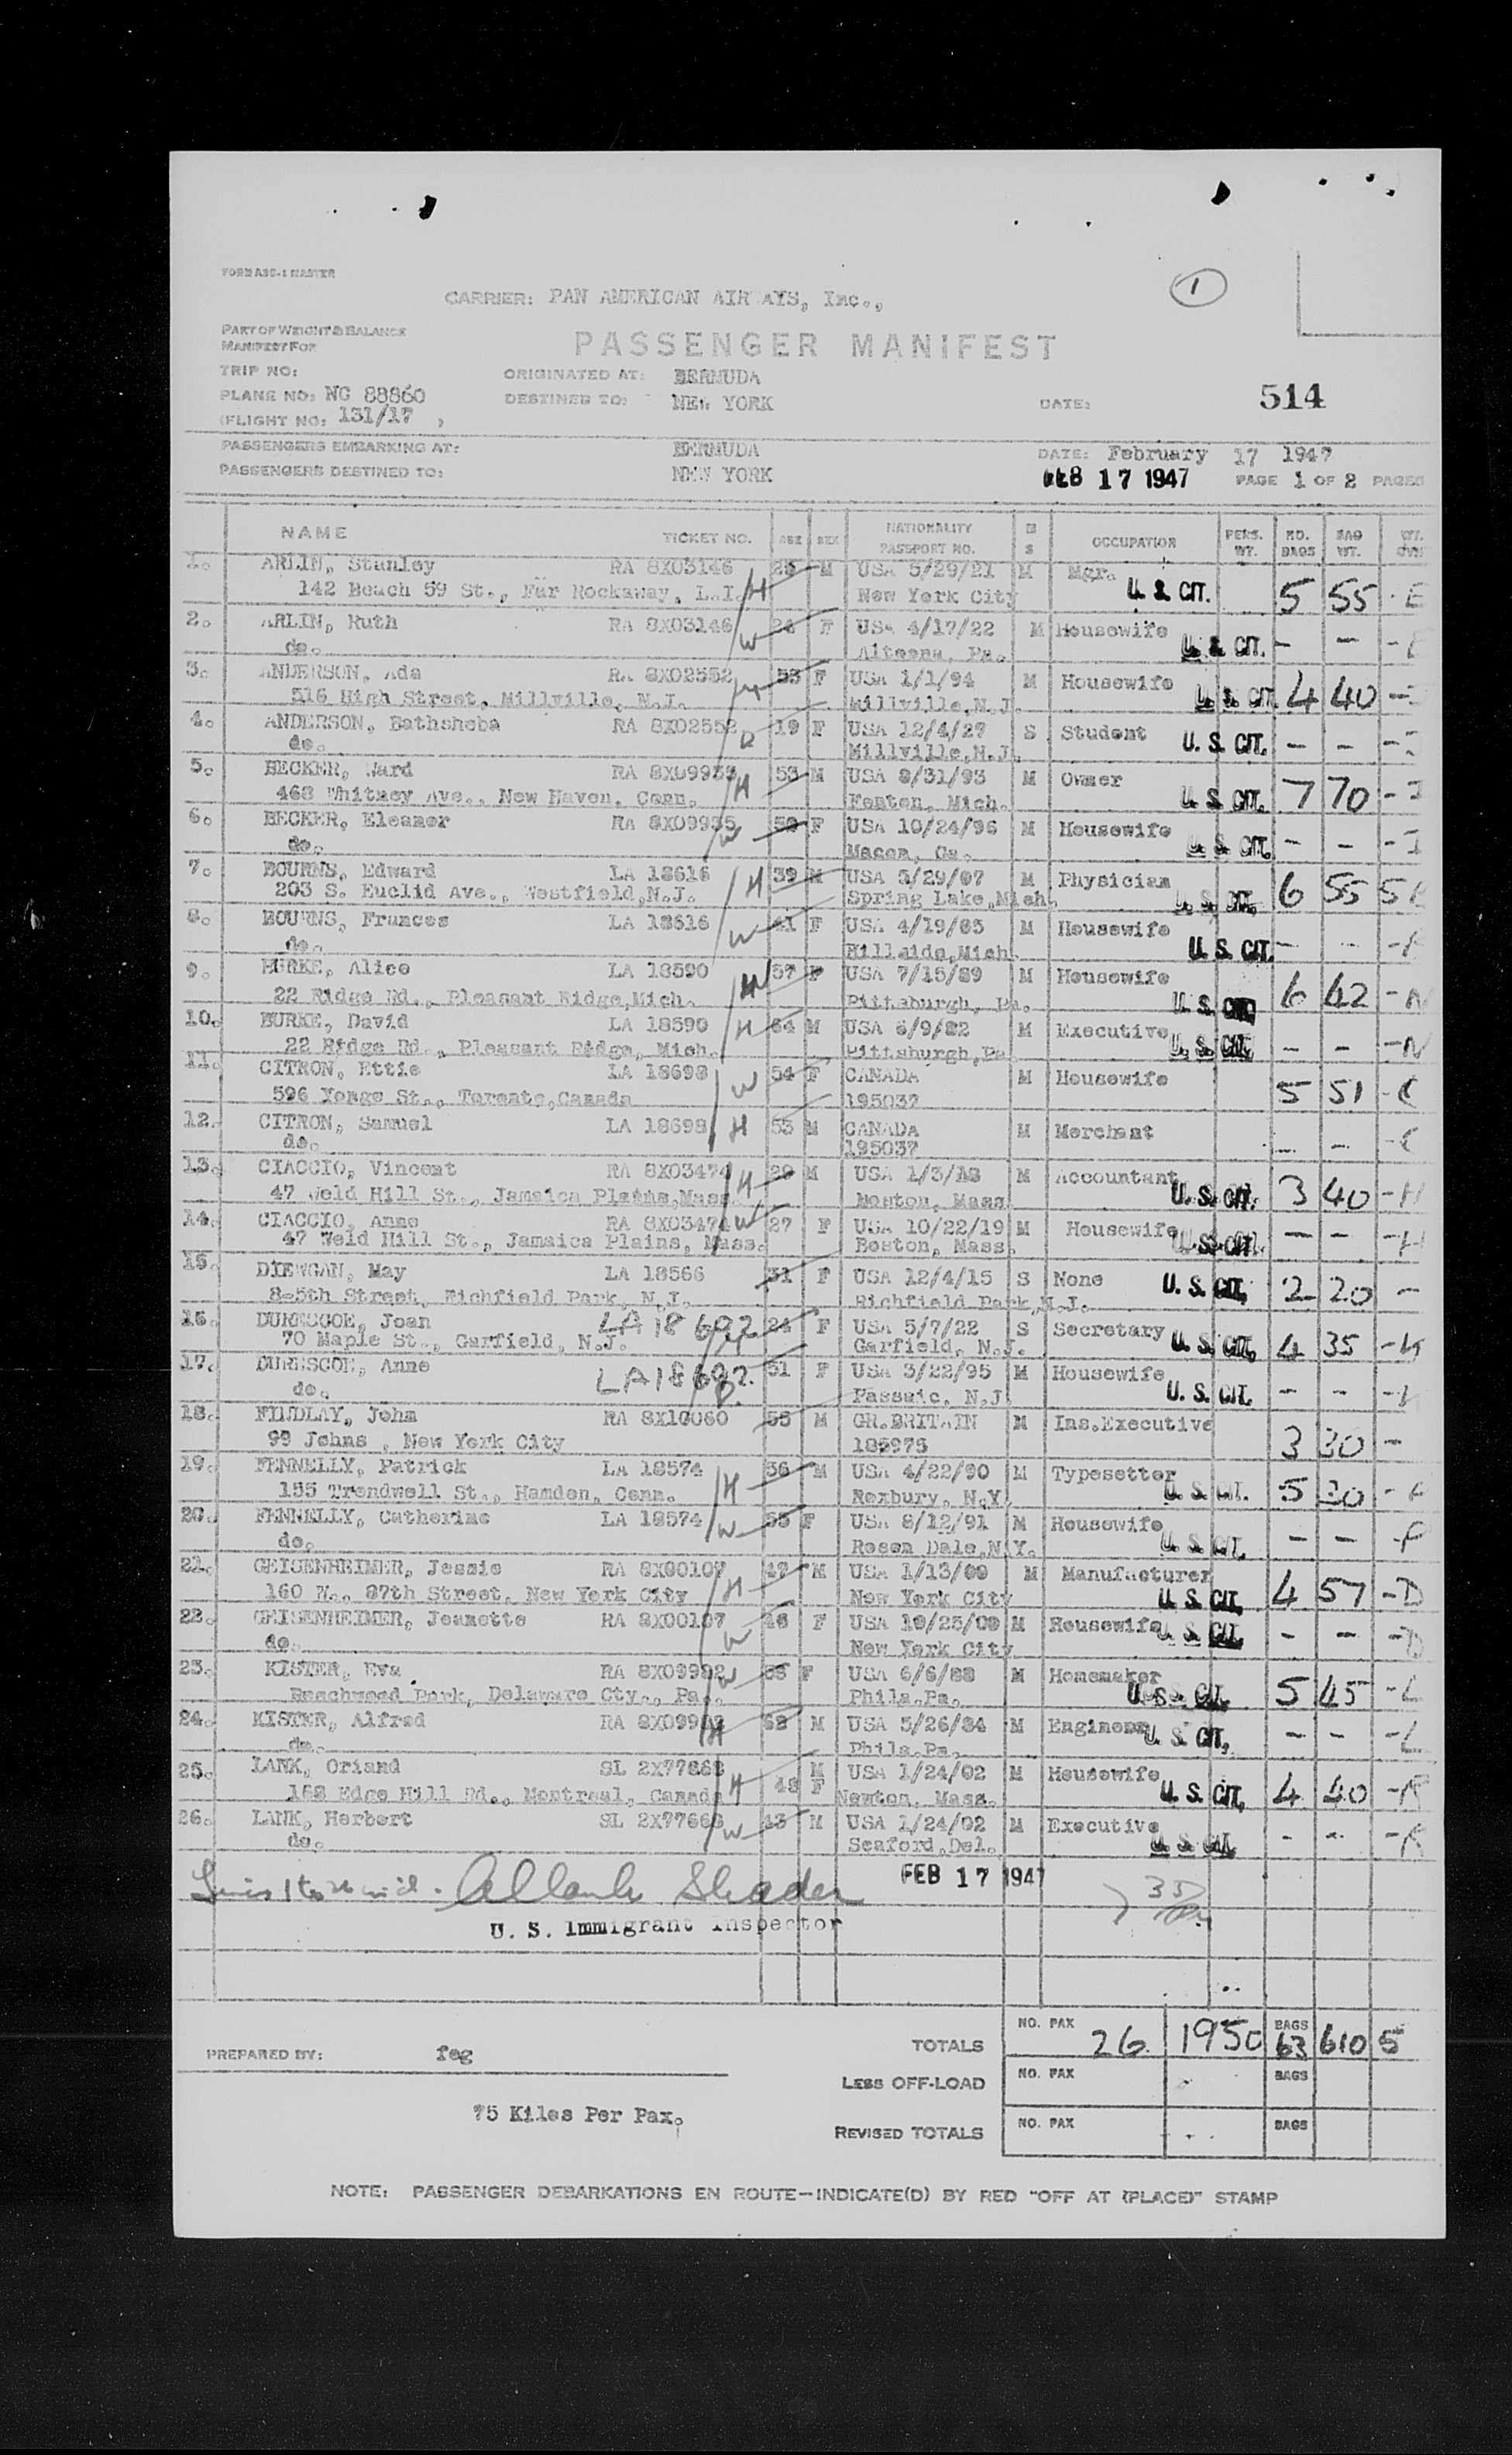 FORM ABS-1 MASTER
CARRIER: PAN AMERICAN AIRWAYS, Inc.,
1
PART OF WEIGHT & BALANCE
MANIFEST FOR
PASSENGER MANIFEST
TRIP NO:
ORIGINATED AT: BERMUDA
PLANE NO: NC 88860
DESTINED TO: NEW YORK
DATE: 514
(FLIGHT NO: 131/17 )
PASSENGERS EMBARKING AT: BERMUDA DATE: February 17 1947
PASSENGERS DESTINED TO: NEW YORK FEB 17 1947 PAGE 1 OF 2 PAGES
NAME TICKET NO. AGE SEX NATIONALITY PASSPORT NO. M S OCCUPATION PERS. WT. NO. BAGS BAG WT.
1. ARLIN, Stanley RA 8X03146 25 M USA 5/29/21 M Mgr.
142 Beach 59 St., Far Rockaway, L.I. H New York City U. S. CIT. 5 55
2. ARLIN, Ruth RA 8X03146 W 24 F USA 4/17/22 M Housewife
do. Altoona, Pa. U. S. CIT. - -
3. ANDERSON, Ada RA 8X02552 M 53 F USA 1/1/94 M Housewife
516 High Street, Millville, N.J. Millville,N.J. U. S. CIT. 4 40 -
4. ANDERSON, Bathsheba RA 8X02552 D 19 F USA 12/4/27 S Student
do. Millville,N.J. U. S. CIT. - - -
5. BECKER, Ward RA 8X09935 H 53 M USA 8/31/93 M Owner
468 Whitney Ave., New Haven, Conn. Fenton, Mich. U. S. CIT. 7 70 -
6. BECKER, Eleanor RA 8X09935 W 50 F USA 10/24/96 M Housewife
do. Macon, Ga. U. S. CIT. - - -
7. BOURNS, Edward LA 18616 H 39 M USA 5/29/07 M Physician
203 S. Euclid Ave., Westfield,N.J. Spring Lake,Mich. U. S. CIT. 6 55 5
8. BOURNS, Frances LA 18616 W 41 F USA 4/19/05 M Housewife
do. Hillside,Mich. U. S. CIT. - - -
9. BURKE, Alice LA 18590 W 57 F USA 7/15/89 M Housewife
22 Ridge Rd., Pleasant Ridge,Mich. Pittsburgh, Pa. U. S. CIT. 6 42 -N
10. BURKE, David LA 18590 H 64 M USA 6/9/82 M Executive
22 Ridge Rd., Pleasant Ridge, Mich. Pittsburgh,Pa. U. S. CIT. - - -N
11. CITRON, Ettie LA 18698 W 54 F CANADA M Housewife
596 Yonge St., Toronto,Canada 195037 5 51 -C
12. CITRON, Samuel LA 18698 H 55 M CANADA M Merchant
do. 195037 - - -C
13. CIACCIO, Vincent RA 8X03474 H 29 M USA 1/3/18 M Accountant
47 Weld Hill St., Jamaica Plains,Mass. Boston, Mass. U. S. CIT. 3 40 -H
14. CIACCIO, Anne RA 8X03474 W 27 F USA 10/22/19 M Housewife
47 Weld Hill St., Jamaica Plains, Mass. Boston, Mass. U. S. CIT. - - -H
15. DIEWGAN, May LA 18566 31 F USA 12/4/15 S None
8-5th Street, Richfield Park, N.J. Richfield Park,N.J. U. S. CIT. 2 20 -
16. DURESCOE, Joan LA 18692 24 F USA 5/7/22 S Secretary
70 Maple St., Garfield, N.J. Garfield, N.J. U. S. CIT. 4 35 -K
17. DURESCOE, Anne LA 18692. D. 51 F USA 3/22/95 M Housewife
do. Passaic, N.J. U. S. CIT. - - -K
18. FINDLAY, John RA 8X10060 55 M GR.BRITAIN M Ins.Executive
99 Johns , New York City 185975 3 30 -
19. FENNELLY, Patrick LA 18574 H 56 M USA 4/22/90 M Typesetter
155 Treadwell St., Hamden, Conn. Roxbury, N.Y. U. S. CIT. 5 30 -F
20. FENNELLY, Catherine LA 18574 W 55 F USA 8/12/91 M Housewife
do. Rosen Dale,N.Y. U. S. CIT. - - -F
21. GEISENHEIMER, Jessie RA 8X00107 H 47 M USA 1/13/00 M Manufacturer
160 W., 87th Street, New York City New York City U. S. CIT. 4 57 -D
22. GEISENHEIMER, Jeanette RA 8X00107 W 46 F USA 10/25/00 M Housewife
do. New York City U. S. CIT. - - -D
23. KISTER, Eva RA 8X09982 W 58 F USA 6/6/88 M Homemaker
Beechwood Park, Delaware Cty., Pa. Phila.Pa. U. S. CIT. 5 45 -L
24. KISTER, Alfred RA 8X09982 H 62 M USA 5/26/84 M Engineer
do. Phila.Pa. U. S. CIT. - - -L
25. LANK, Oriand SL 2X77668 H 48 M F USA 1/24/02 M Housewife
168 Edge Hill Rd., Montreal, Canada Newton, Mass. U. S. CIT. 4 40 -R
26. LANK, Herbert SL 2X77668 W 45 M USA 1/24/02 M Executive
do. Seaford,Del. U. S. CIT. - - -R
FEB 17 1947
U. S. Immigrant Inspector
TOTALS NO. PAX 26 1950 BAGS 63 610 5
PREPARED BY: feg
LESS OFF-LOAD NO. PAX BAGS
75 Kilos Per Pax.
REVISED TOTALS NO. PAX BAGS
NOTE: PASSENGER DEBARKATIONS EN ROUTE—INDICATE(D) BY RED "OFF AT (PLACE)" STAMP